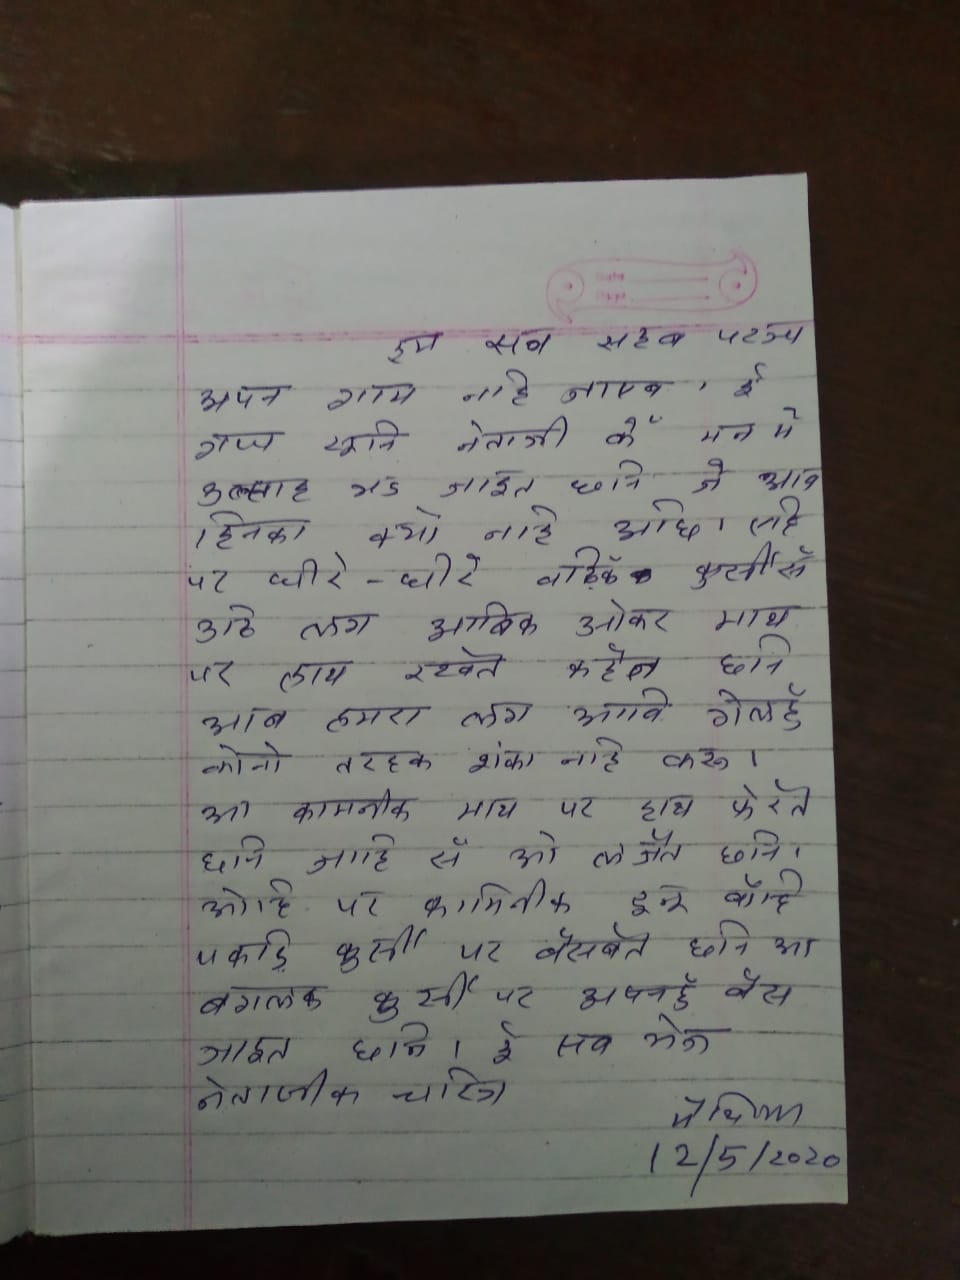 हम सब सहब परञ्च
अपन गाम नाहि जाएब। ई
गप्प सुनि नेताजी कें मन में
उत्साह भड जाइत छनि जे आब
हिनका क्यो नाहि अछि। ताहि
पर धीरे-धीरे कुर्सी सँ
उठि लग आबिक ओकर माथ
पर हाथ रखैत कहैत छनि
आब हमरा लग आबि गेलहुँ
कोनो तरहक शंका नाहि करू।
आ कामनीक माथ पर हाथ फेरैत
छनि जाहि सँ ओ लजैत छनि।
ओहि पर कामिनीक बाँहि
पकड़ि कुर्सी पर बैसबैत छनि आ
बगलक कुर्सी पर अपनहुँ बैस
जाइत छनि। ई सब भेल
नेताजीक चरित्र
मैथिली
12/5/2020